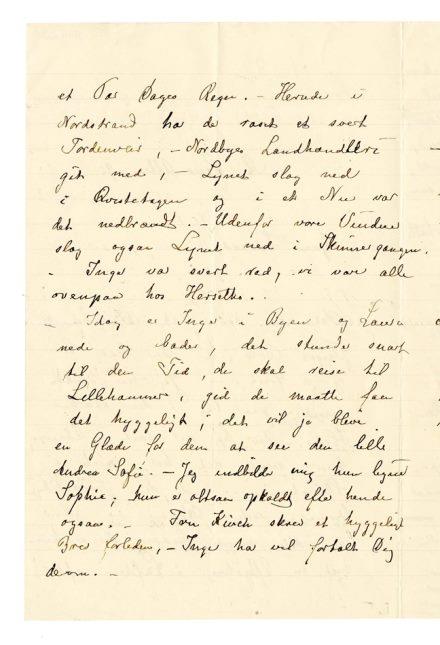 et Par Dages Regn. – Herude i
Nordstrand ha de raset et svert
Tordenveir, – Nordbyes Landhandleri
gik med, – Lynet slog ned
i Kvistetagen og i et Nu var
det nedbrændt. – Udenfor vore Vinduer
slog ogsaa Lynet ned i Skinnegangen.
– Inga va svert ræd, vi vare alle
ovenpaa hos Herseths. .
– Idag er Inga i Byen og Laura
nede og bader, det stunde snart
til den Tid, de skal reise til
Lillehammer, gid de maatte faa
det hyggeligt; det vil jo blive
en Glæde for dem at see den lille
Andrea Sofie. – Jeg indbilder mig hun ligner
Sophie; hun er altsaa opkaldt efter hende
ogsaa. – Kirch skrev et hyggeligt
Brev forleden, – Inga ha vel fortalt Dig
derom. –